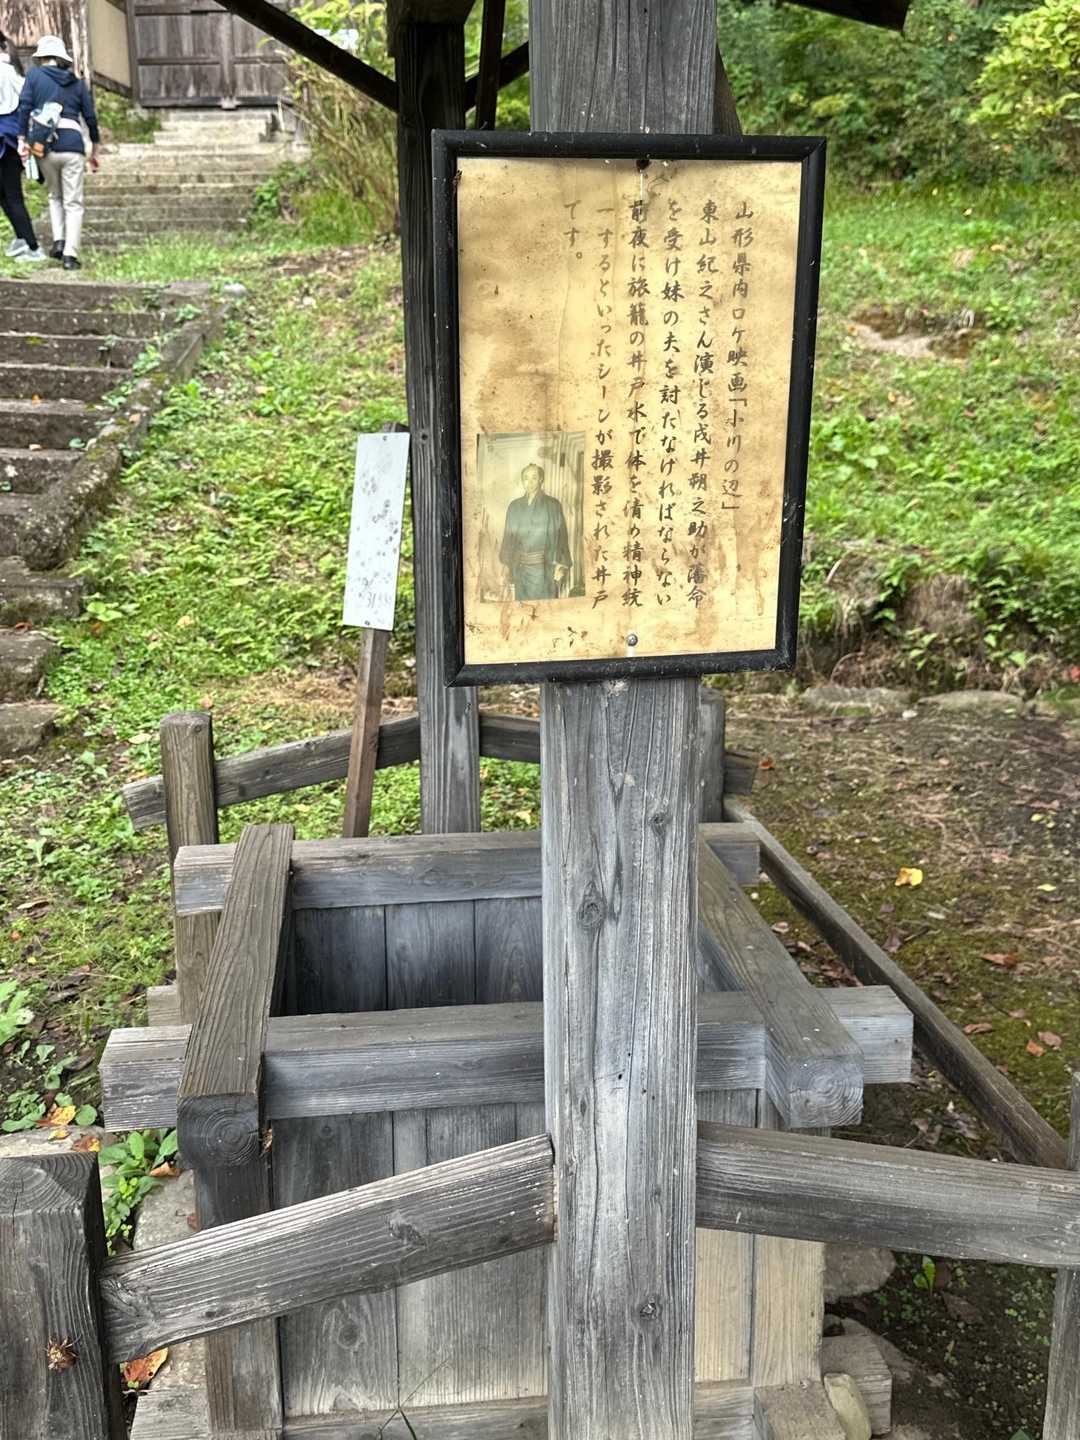 山形県内ロケ映画「小川の辺」
東山紀之さん演じる戌井朔之助が藩命
を受け妹の夫を討たなければならない
前夜に旅籠の井戸水で体を清め精神統
一するといったシーンが撮影された井戸
です。